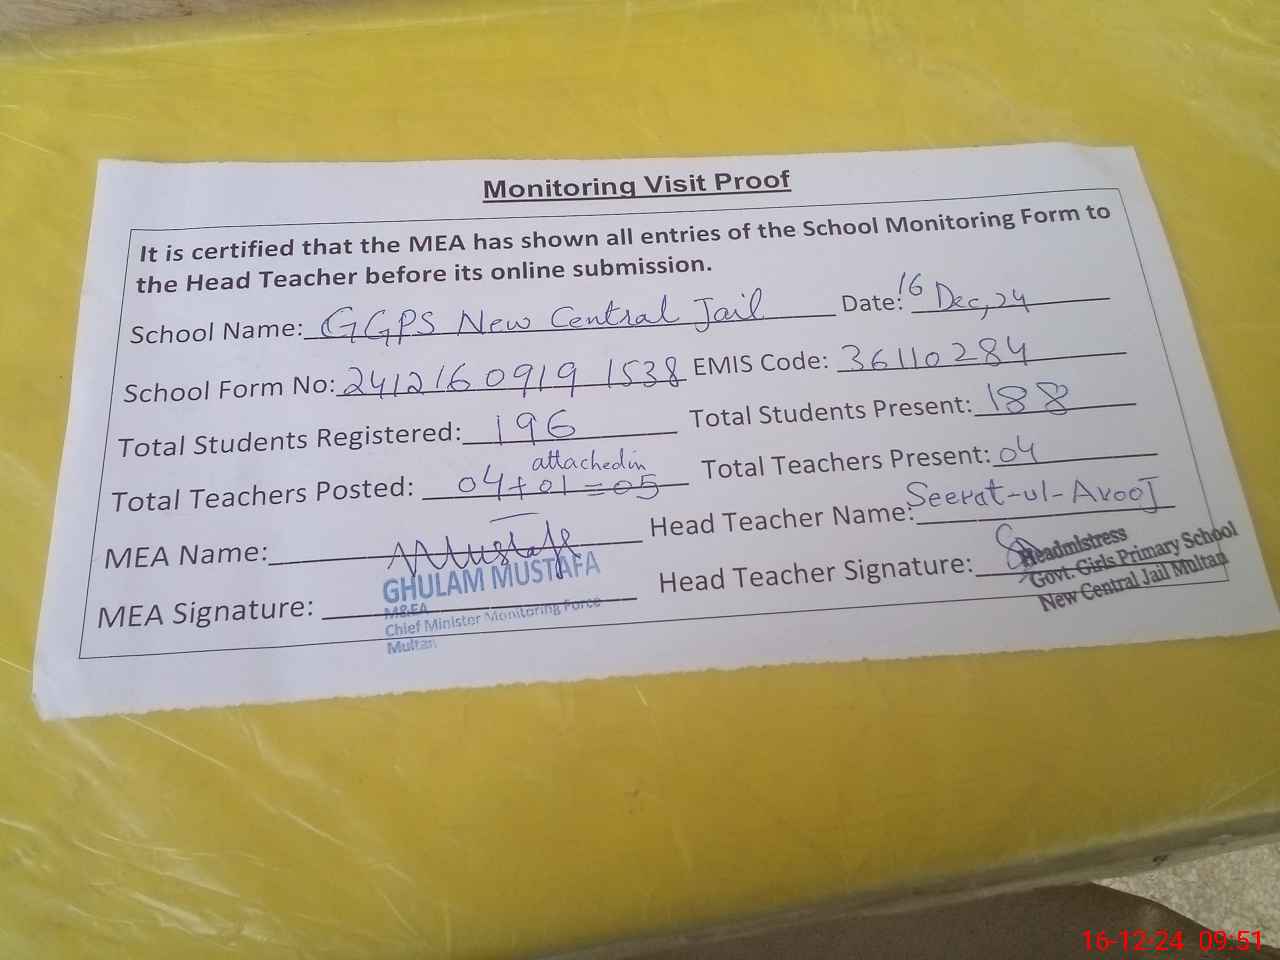 Monitoring Visit Proof
It is certified that the MEA has shown all entries of the School Monitoring Form to
the Head Teacher before its online submission.
School Name: GGPS New Central Jail Date: 16 Dec, 24
School Form No: 2412160919 1538 EMIS Code: 36110284
Total Students Registered: 196 Total Students Present: 188
attachedin
Total Teachers Posted: 04+01=05 Total Teachers Present: 04
MEA Name: Head Teacher Name: Seerat-ul-Arooj
MEA Signature: Head Teacher Signature:
GHULAM MUSTAFA
M&EA
Chief Minister Monitoring Force
Multan
Headmistress
Govt. Girls Primary School
New Central Jail Multan
16-12-24 09:51